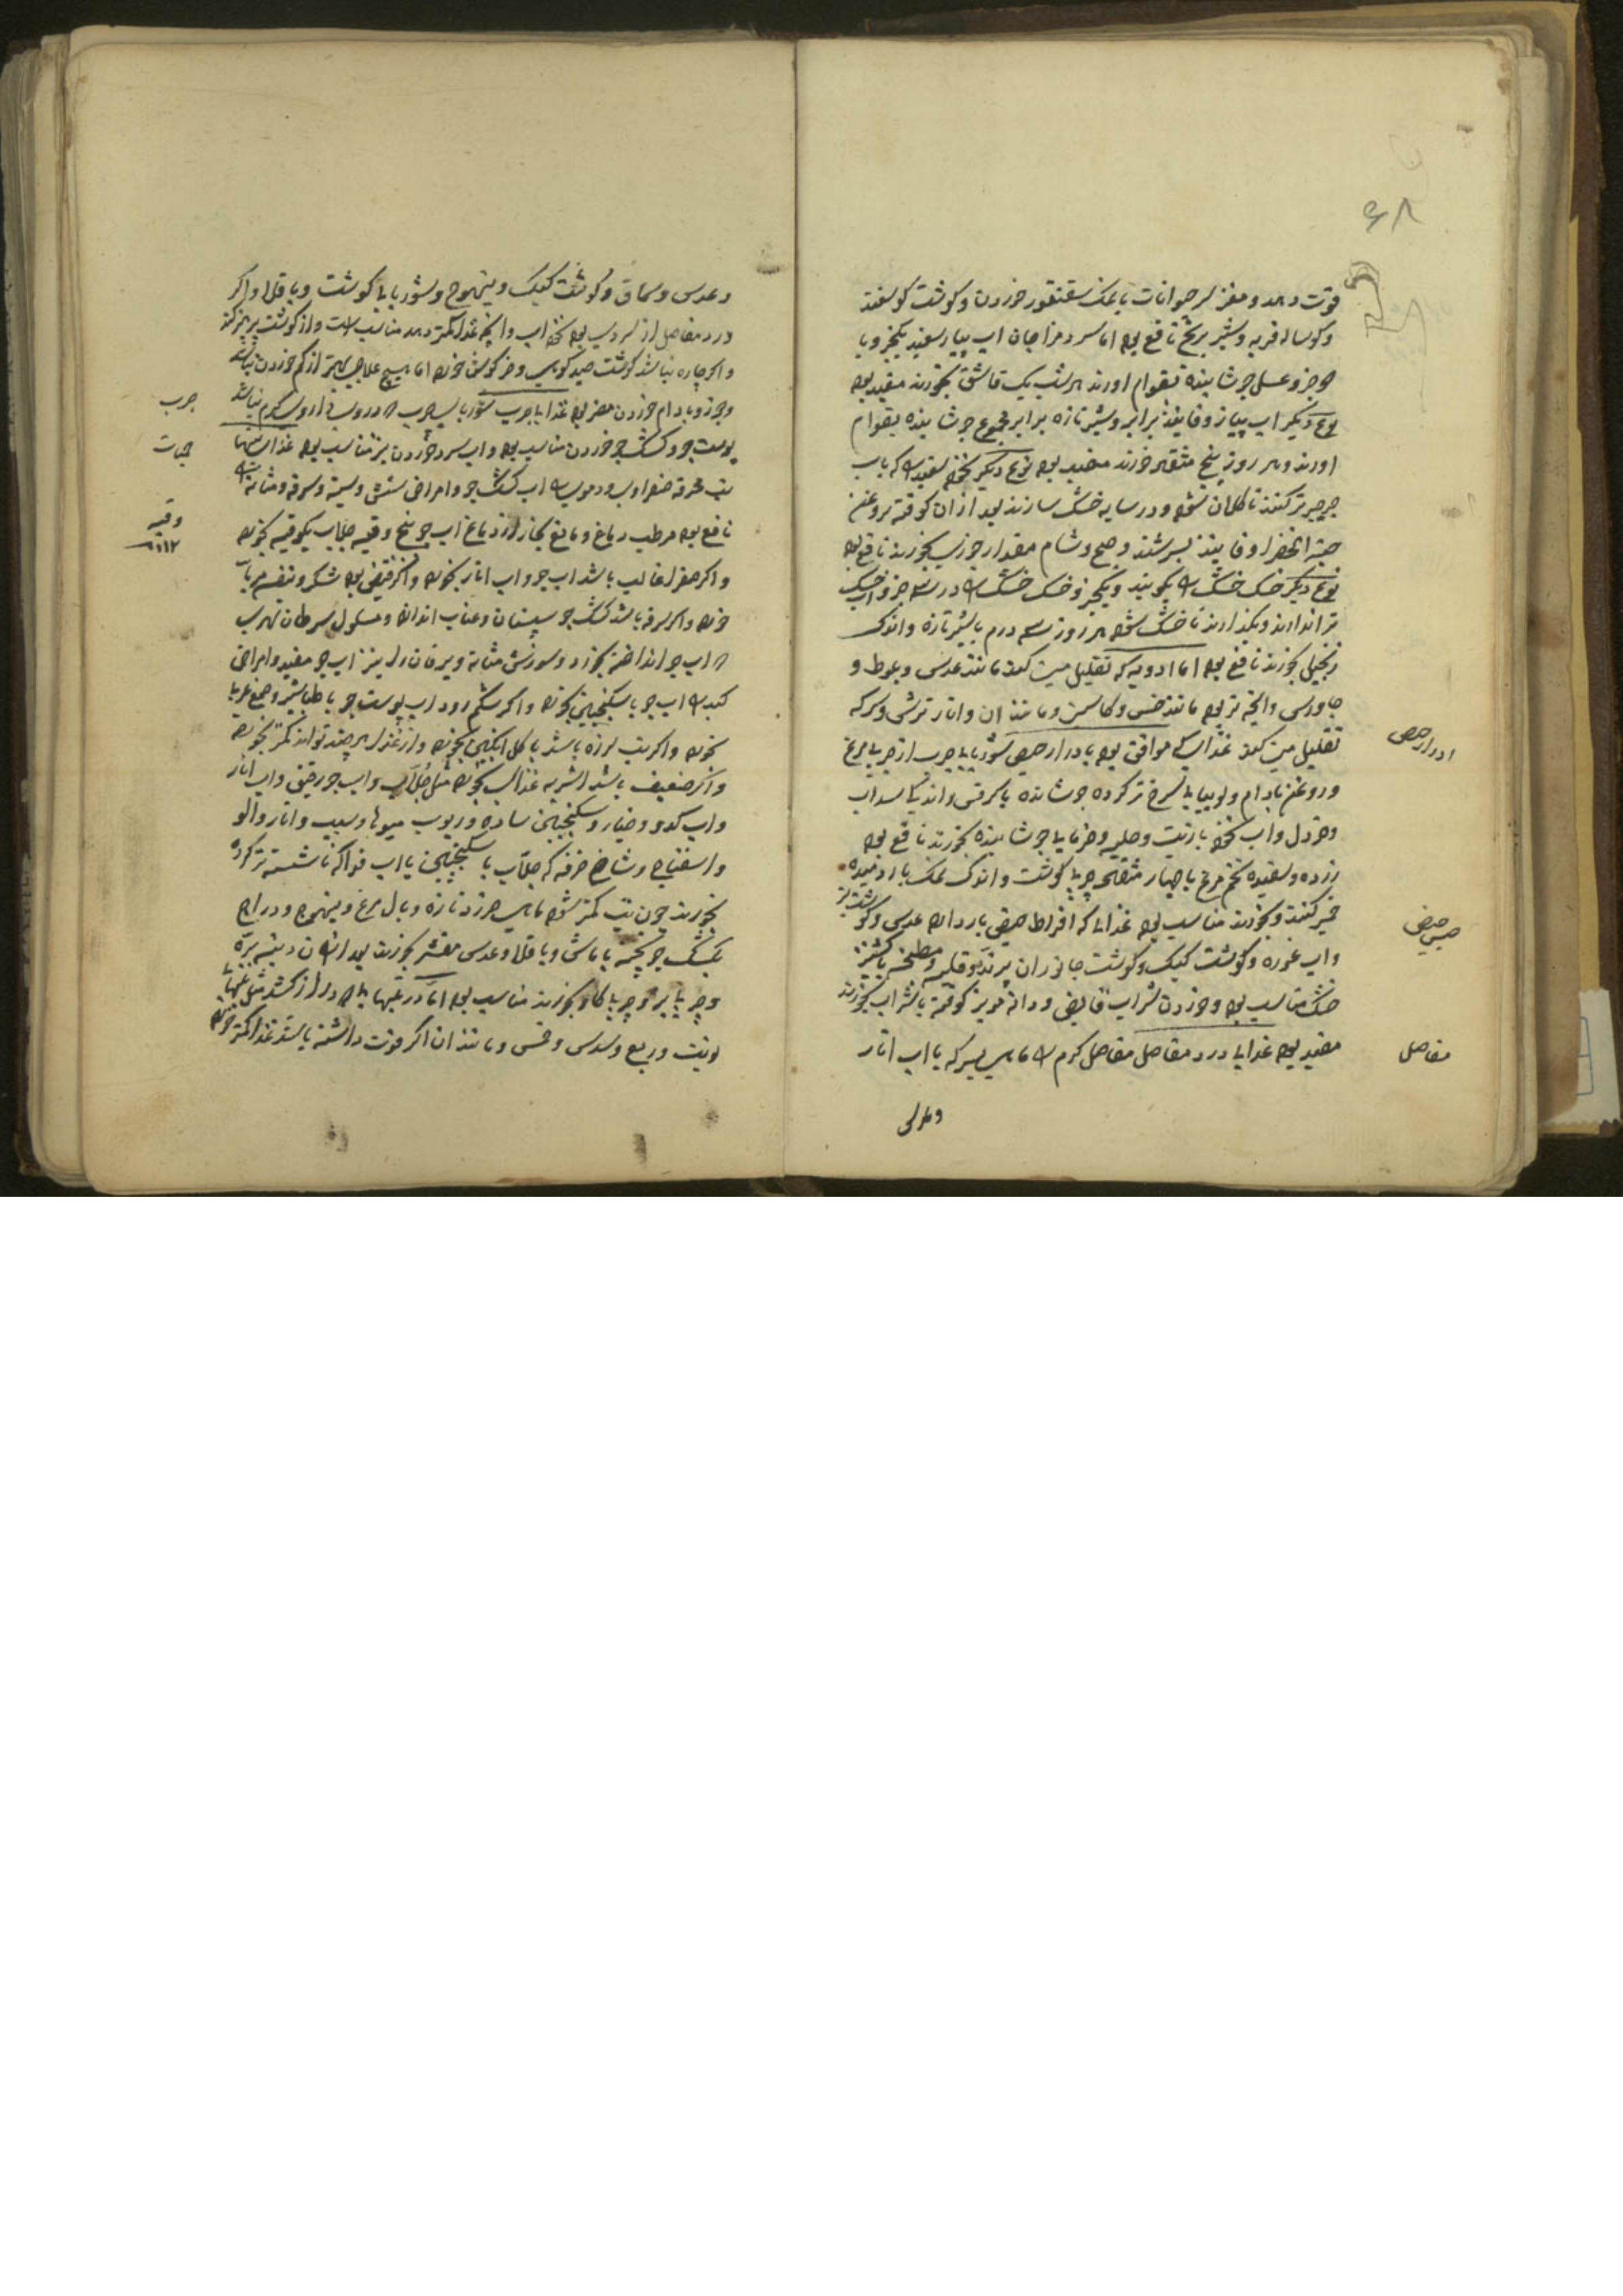 ۶۸
قوت دهد و مغز سر حیوانات با نمک سقنقور خوردن و گوشت گوسفند
و گوساله فربه و شیر برنج نافع بود اما سرد مزاجان اب پیاز سفید یکجزو با
دو جزو عسل جوشانیده بقوام اورند هر شب یک قاشق بخورند مفید بود
نوع دیگر اب پیاز و فانید برابر و شیر تازه برابر مجموع جوشانیده بقوام
اورند و هر روز پنج مثقال خورند مفید بود نوع دیگر نخود سفید که باب
جرجیر تر کنند تا کلان شود و در سایه خشک سازند بعد از ان کوفته بروغن
حبة الخضرا و فانید بسرشند و صبح و شام مقدار جوزی بخورند نافع بود
نوع دیگر خسک خشک بکوبند و یکجزو خسک خشک در سه جزو اب خسک
تر اندازند و بگذارند تا خشک شود هر روز سه درم با شیر تازه و اندک
زنجبیل بخورند نافع بود اما ادویه که تقلیل منی کند مانند عدس و بلوط و
جاورس و انچه تر بود مانند خس و کاسنی و مانند ان و انار ترش و سرکه
تقلیل منی کند غذاهای موافق بود با درار حیض شوربای چرب از چربی مرغ
و روغن بادام و لوبیای سرخ تر کرده جوشانده با کرفس و اندکی سداب
و خردل و اب نخود با زیت و حلبه و خرمایا جوشانیده بخورند نافع بود
زرده و سفیده تخم مرغ با چهار مثقال چربی گوشت و اندک نمک با ارد میده
خمیر کنند و بخورند مناسب بود غذاها که افراط حیض باز دارد عدس و گوشت بز
و اب غوره و گوشت کبک و گوشت جانوران پرنده و قلیه و مطبخه با گشنیز
خشک مناسب بود و خوردن شراب قابض و دانه مویز کوفته با شراب بخورند
مفید بود غذاهای درد مفاصل مفاصل گرم ماهی بسرکه یا اب انار
ادرار حیض
حبس حیض
مفاصل
و عدس
و عدس و سماق و گوشت کبک و تیهوج و شوربای گوشت و باقلا و اگر
درد مفاصل از سردی بود نخود اب و انچه غذا کمتر دهد مناسب است و از گوشت پرهیز کند
و اگر چاره نباشد گوشت صید کوهی و خرگوش خورد اما هیچ علاجی بهتر از کم خوردن نباشد
و جوز و بادام خوردن مضر بود غذاهای جرب شوربای چرب که در وی داروی گرم نباشد
پوست جو و کشک جو خوردن مناسب بود و اب سرد خوردن نیز مناسب بود غذای تبها
تب محرقه صفراوی و دموی اب کشک جو و امراض شش و سینه و سرفه و مثانه
نافع بود مرطب دماغ و مانع بخار از دماغ اب جو پنج وقیه جلاب یکوقیه بخورد
و اگر صفرا غالب باشد اب جو و اب انار بخورد و اگر قبض بود شکر و بنفشه مربا
خورد و اگر سرفه باشد کشک جو سپستان و عناب اندازد و مسلول سرطان نهری
در اب جو انداخته بخورد و سوزش مثانه و یرقان را نیز اب جو مفید و امراض
کبد اب جو با سکنجبین بخورد و اگر شکم رود اب پوست جو با طباشیر و صمغ عربی
خورد و اگر تب لرزه باشد با گل انگبین بخورد و از غذا هر چند تواند کمتر بخورد
و اگر ضعیف باشد اشربه غذایی بخورد مثل جلاب و اب جو رقیق و اب انار
و اب کدو و خیار و سکنجبین ساده و ربوب میوها و سیب و انار و الو
و اسفناج و شاخ خرفه که جلاب یا سکنجبین یا اب فواکه ناشسته تر کرده
بخورند چون تب کمتر شود ماهی خرد تازه و بال مرغ و تیهوج و دراج
کشک جو پخته با ماش و باقلا و عدس مقشر بخورند بعد از ان دنبه بره
و چربی بز و چربی گاو بخورند مناسب بود اما در تبهای که دراز کشد مثل تبهای
نوبت و ربع و سدس و خمس و مانند ان اگر قوت داشته باشد غذا کمتر خورد
جرب
حمیات
وقیه